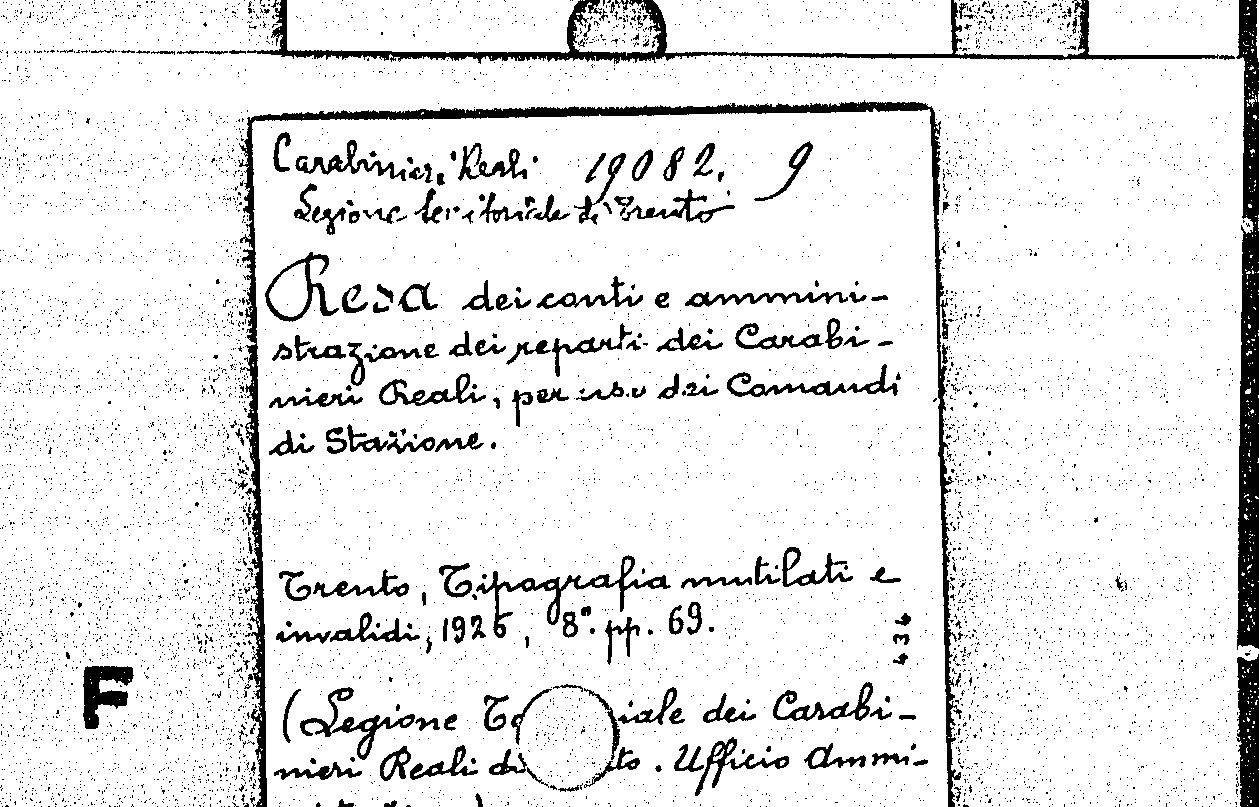 Carabinieri Reali 19082. 9
Legione territoriale di Trento
Resa dei conti e ammini-
strazione dei reparti dei Carabi-
nieri Reali, per uso dei Comandi
di Stazione.
Trento, Tipografia mutilati e
invalidi, 1926, 8°. pp. 69.
434
F
(Legione iale dei Carabi-
nieri Reali di to. Ufficio Ammi-